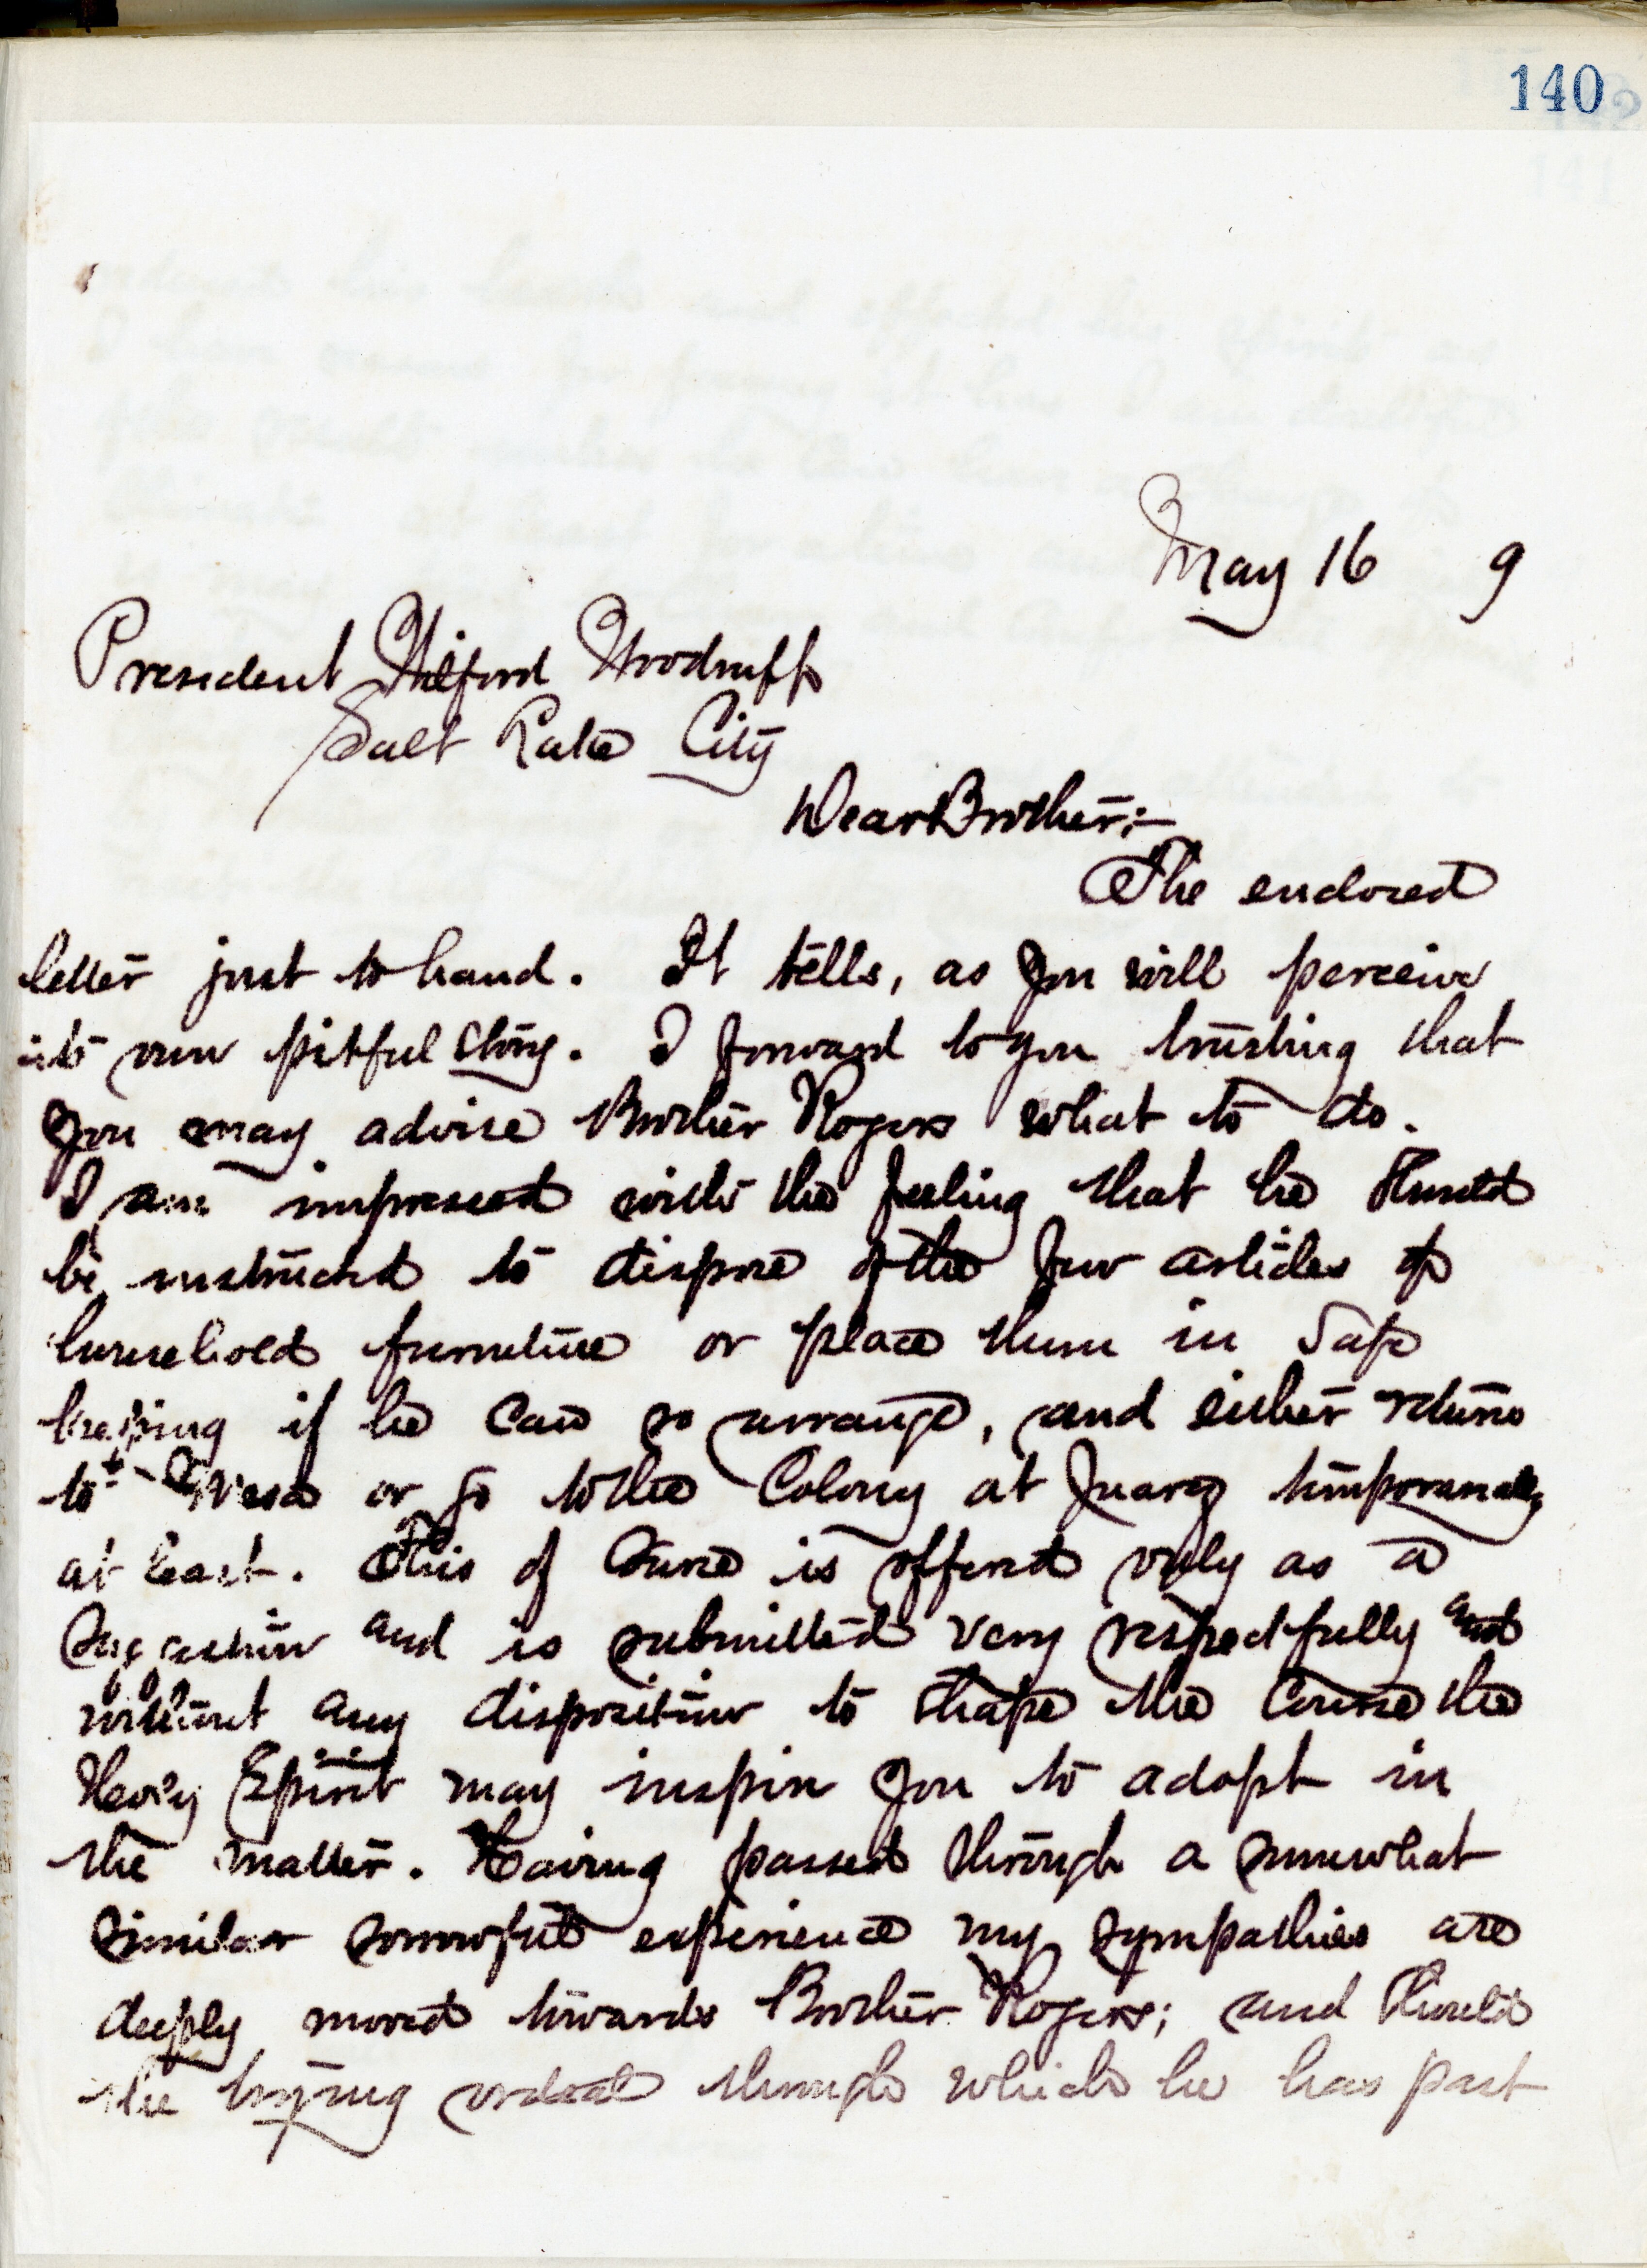 140
May 16 9
President Wilford Woodruff
Salt Lake City
Dear Brother:-
The enclosed
letter just to hand. It tells, as you will perceive
its own pitful story. I forward to you trusting that
you may advise Brother Rogers what to do.
I am impressed with the feeling that he should
be instructed to dispose of the few articles of
household furniture or place them in safe
keeping if he can so arrange, and either return
to Mesa or go to the Colony at Juarez temporarally
at least. This of course is offered only as a
suggestion and is submitted very respectfully and
without any disposition to shape the course the
Holy Spirit may inspire you to adopt in
the matter. Having passed through a somewhat
similar sorrowful experience my sympathies are
deeply moved towards Brother Rogers; and should
the trying ordeal through which he has past